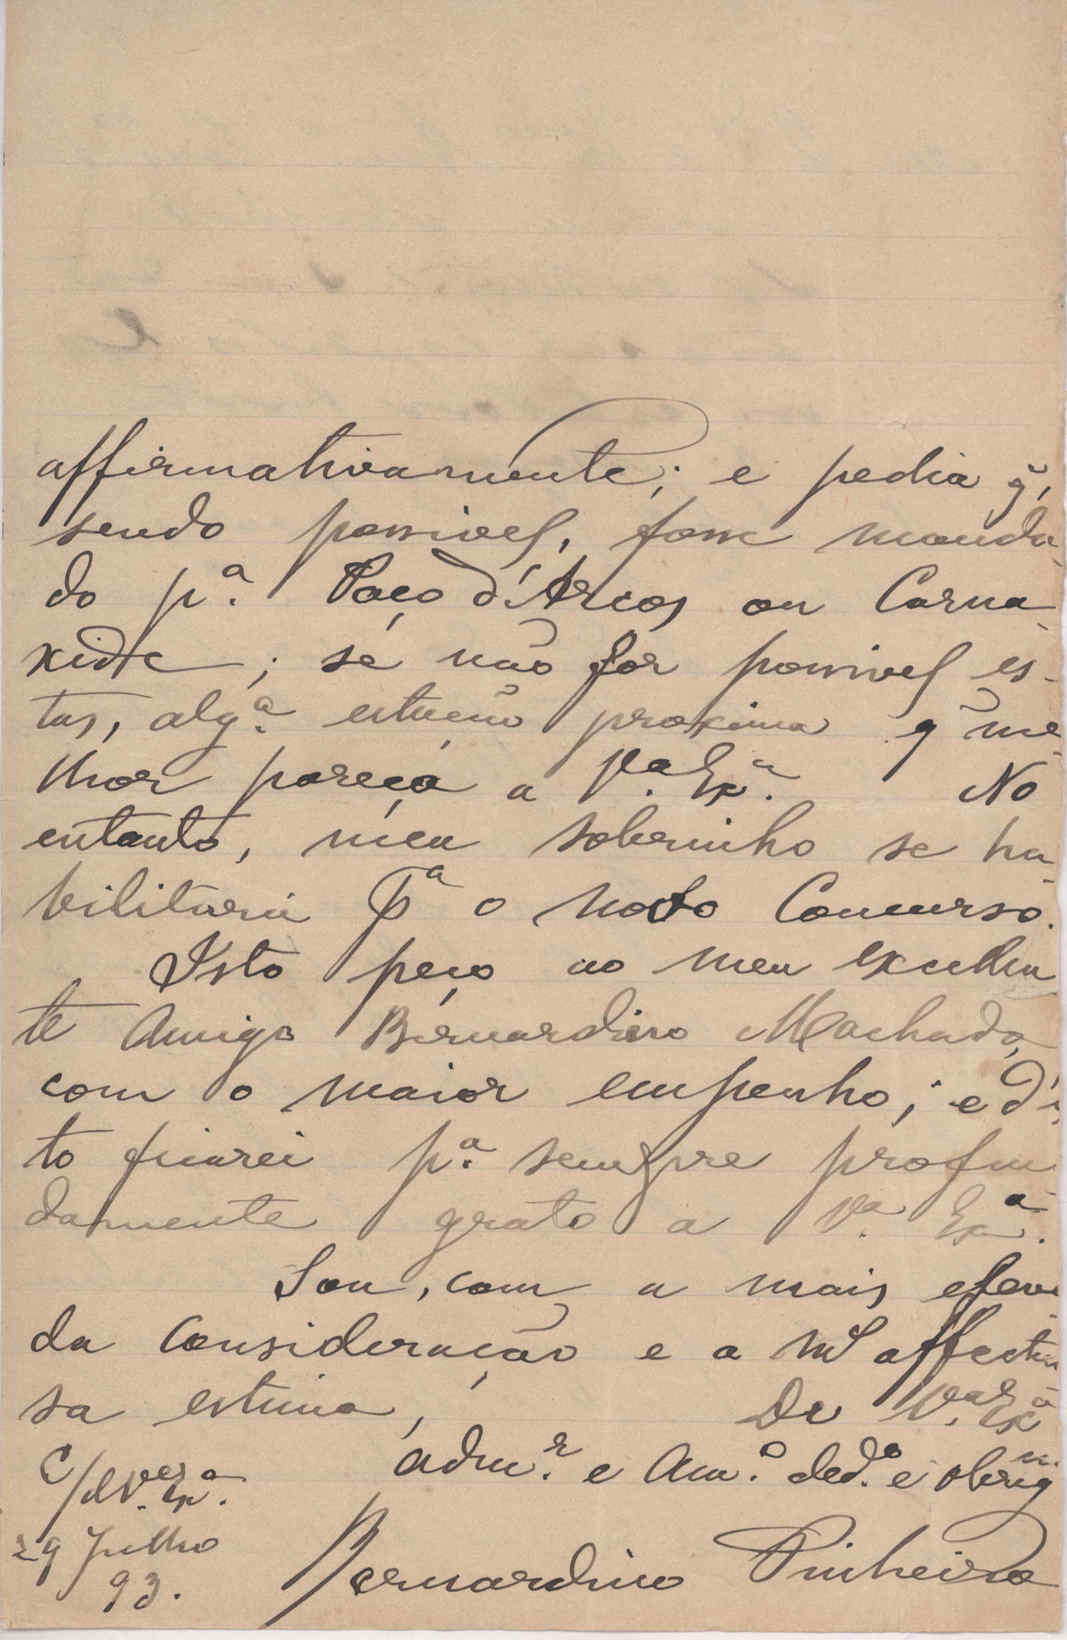 affirmativamente; e pedia q̃,
sendo possivel, fosse manda-
do p.ª Paço d'Arcos ou Carna-
xide; se não for possivel es-
tas, alg.ª estação proxima q̃ me-
lhor pareça a V.ª Ex.ª No
entanto, meu sobrinho se ha-
bilitará p.ª o novo Concurso.
Isto peço ao meu excellen-
te Amigo Bernardino Machado,
com o maior empenho; e d'is-
to ficarei p.ª sempre profun-
damente grato a V.ª Ex.ª.
Sou, com a mais eleva-
da consideração e a m.s affectuo-
sa estima, De V.ª Ex.ª
adm.r e Am.º ded.º e obrig
C/de V. Ex.ª.
29 Julho
93.
Bernardino Pinheiro